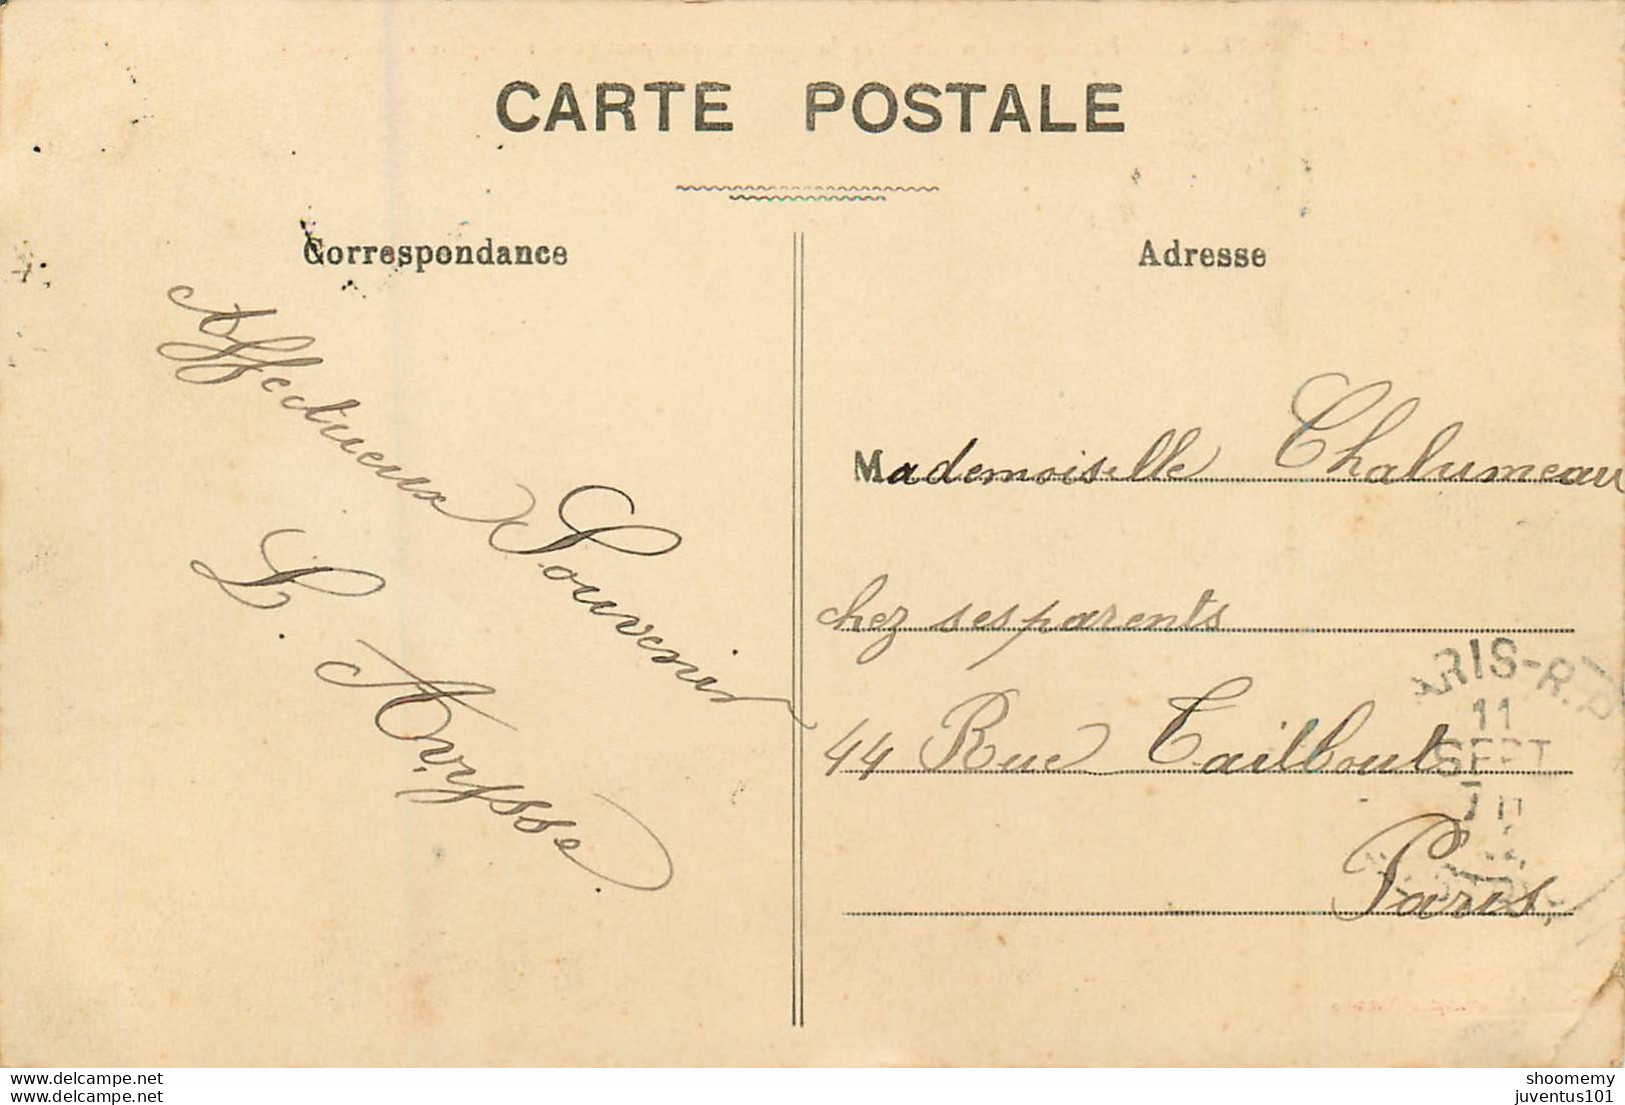 CARTE POSTALE
Correspondance
Adresse
Affectueux Souvenir
L. Avysse.
Mademoiselle Chalumeau
chez ses parents
44 Rue Taitbout
Paris
ARIS-R.P
11
SEPT
www.delcampe.net
www.delcampe.net
shoomemy
juventus101